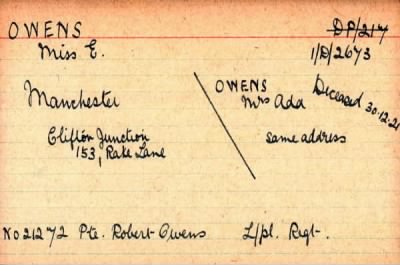 OWENS
DP/217
Miss E.
1/D/2673
Manchester
OWENS
Mrs Ada
Deceased 30.12.21
Clifton Junction
153, Rake Lane
same address
No 21272 Pte. Robert Owens L/pl. Regt.